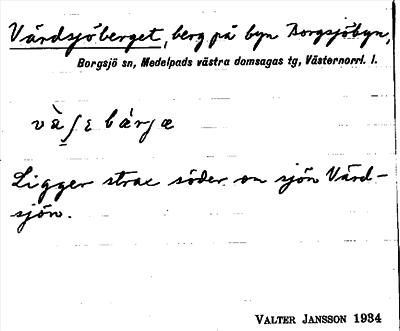 Värdsjöberget, berg på byn Borgsjöbyn,
Borgsjö sn, Medelpads västra domsagas tg, Västernorrl. l.
væ̀ʃɛbárjæ
Ligger strax söder om sjön Värd-
sjön.
VALTER JANSSON 1934